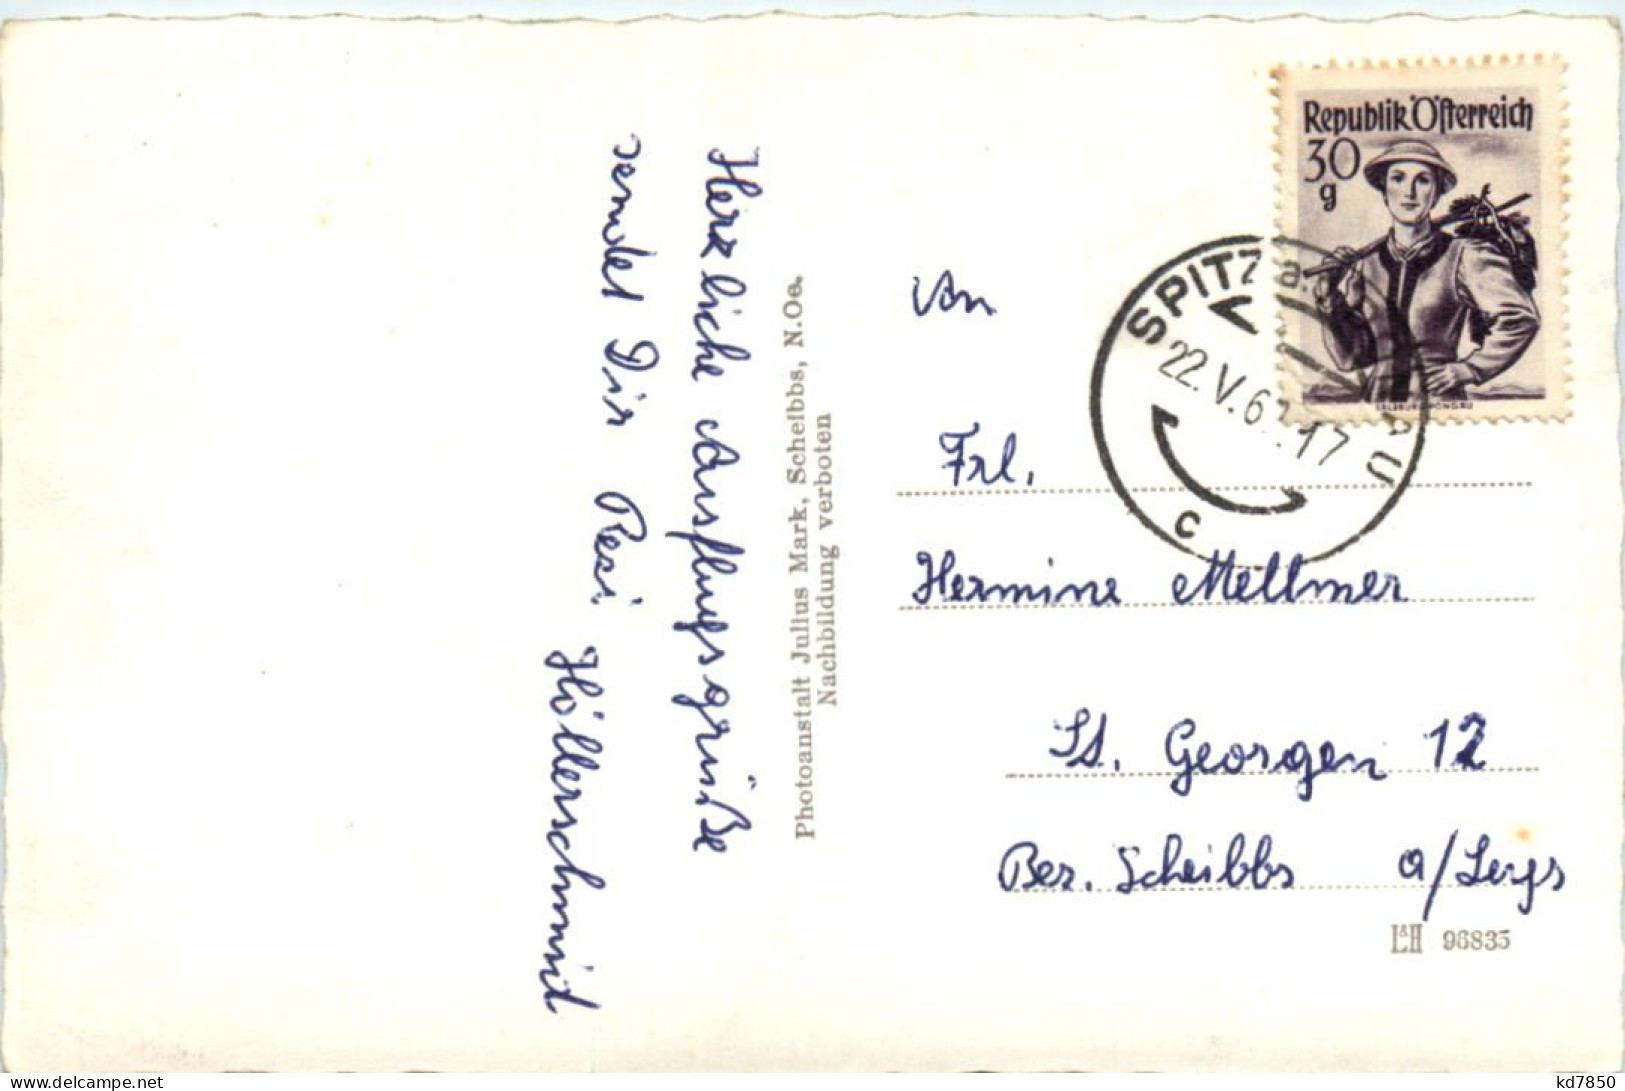 Herzliche Ausflugsgrüße
sendet Dir Resi
Höllerschmid
Photoanstalt Julius Mark, Scheibbs, N.Oe.
Nachbildung verboten
Republik Österreich
30
g
SALZBURG PONGAU
SPITZ a.
22.V.6 .17
c
An
Frl.
Hermine Mellmer
St. Georgen 12
Bez. Scheibbs a/
L&H 96835
kd7850